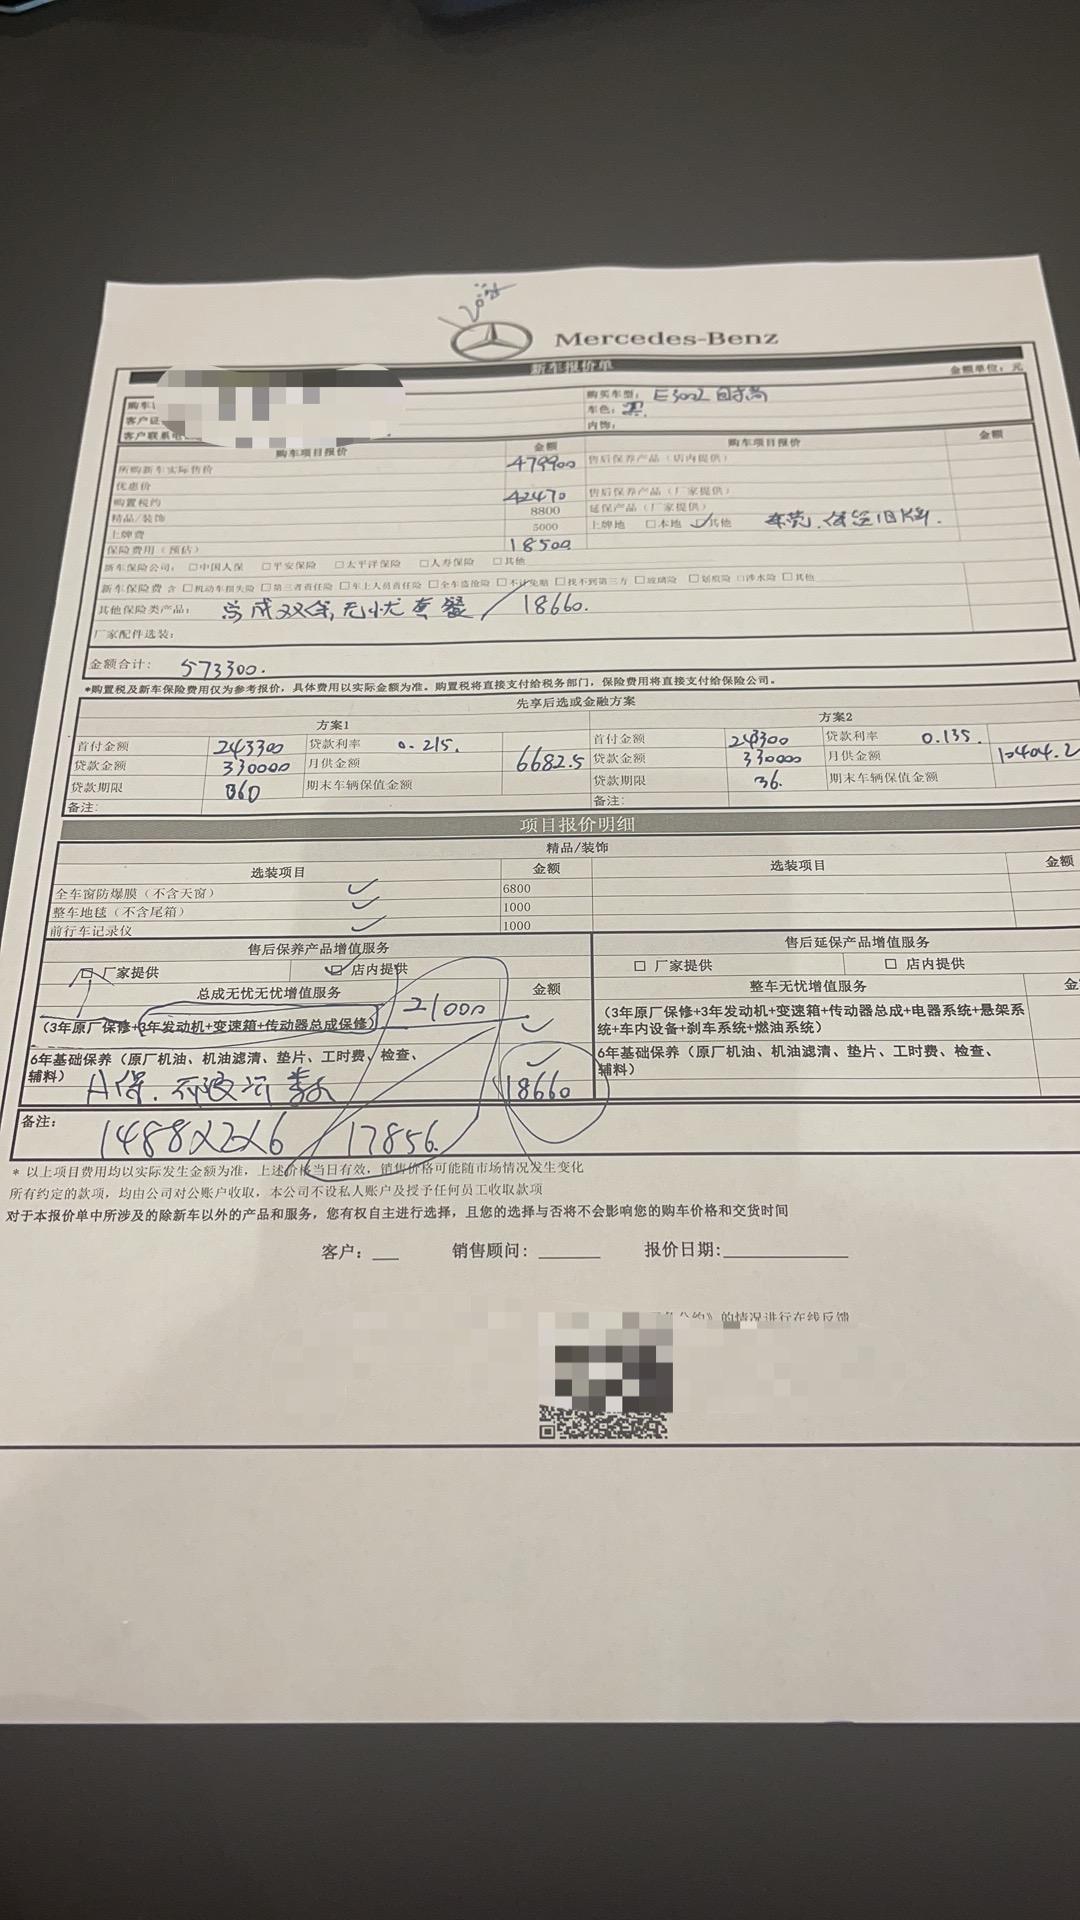 Mercedes-Benz
新车报价单
金额单位：元
购车
购买车型： E300L 时尚
客户证
车色： 黑
客户联系电
内饰：
购车项目报价 金额 购车项目报价 金额
所购新车实际售价 479900 售后保养产品（店内提供）
优惠价
购置税约 42470 售后保养产品（厂家提供）
精品/装饰 8800 延保产品（厂家提供）
上牌费 5000 上牌地 □本地 ✓其他 东莞. 保留旧牌.
保险费用（预估） 18500
新车保险公司： □中国人保 □平安保险 □太平洋保险 □人寿保险 □其他
新车保险费 含 □机动车损失险 □第三者责任险 □车上人员责任险 □全车盗抢险 □不计免赔 □找不到第三方 □玻璃险 □划痕险 □涉水险 □其他
其他保险类产品： 总成双保无忧套餐 / 18660.
厂家配件选装：
金额合计： 573300.
*购置税及新车保险费用仅为参考报价，具体费用以实际金额为准。购置税将直接支付给税务部门，保险费用将直接支付给保险公司。
先享后选或金融方案
方案1 方案2
首付金额 243300 贷款利率 0.215. 首付金额 243300 贷款利率 0.135.
贷款金额 330000 月供金额 6682.5 贷款金额 330000 月供金额 10404.2
贷款期限 60 期末车辆保值金额 贷款期限 36. 期末车辆保值金额
备注： 备注：
项目报价明细
精品/装饰
选装项目 金额 选装项目 金额
全车窗防爆膜（不含天窗） ✓ 6800
整车地毯（不含尾箱） ✓ 1000
前行车记录仪 ✓ 1000
售后保养产品增值服务 售后延保产品增值服务
□ 厂家提供 ☑ 店内提供 □ 厂家提供 □ 店内提供
总成无忧无忧增值服务 金额 整车无忧增值服务 金
（3年原厂保修+3年发动机+变速箱+传动器总成保修） 21000 ✓
（3年原厂保修+3年发动机+变速箱+传动器总成+电器系统+悬架系
统+车内设备+刹车系统+燃油系统）
6年基础保养（原厂机油、机油滤清、垫片、工时费、检查、
辅料） A保. 不限次数 ✓ 18660
6年基础保养（原厂机油、机油滤清、垫片、工时费、检查、
辅料）
备注： 1488×2×6 17856.
* 以上项目费用均以实际发生金额为准，上述价格当日有效，销售价格可能随市场情况发生变化
所有约定的款项，均由公司对公账户收取，本公司不设私人账户及授予任何员工收取款项
对于本报价单中所涉及的除新车以外的产品和服务，您有权自主进行选择，且您的选择与否将不会影响您的购车价格和交货时间
客户：___ 销售顾问：______ 报价日期：____________
公约》的情况进行在线反馈